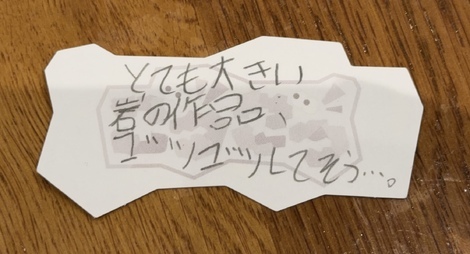 とても大きい
岩の作品、
ゴツゴツしてそう…。